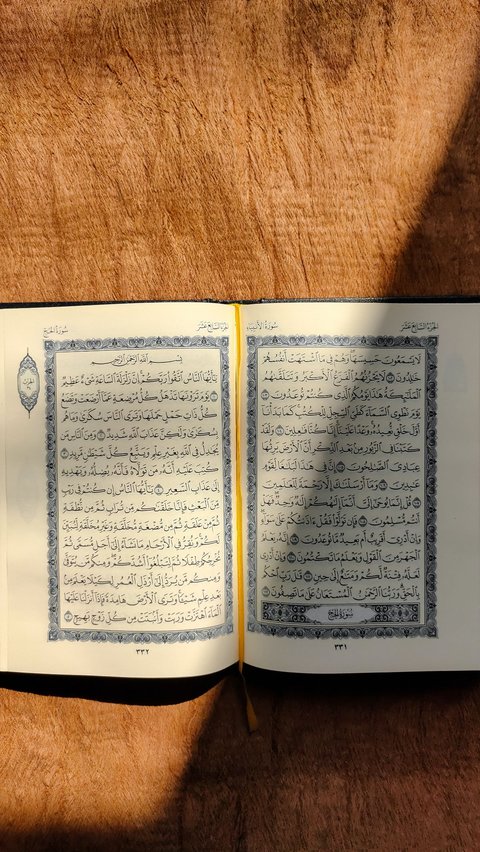 الجُزْءُ السَّابِعَ عَشَرَ
سُورَةُ الأَنبِيَاءِ
لَا يَسْمَعُونَ حَسِيسَهَا ۖ وَهُمْ فِي مَا ٱشْتَهَتْ أَنفُسُهُمْ
خَٰلِدُونَ ١٠٢ لَا يَحْزُنُهُمُ ٱلْفَزَعُ ٱلْأَكْبَرُ وَتَتَلَقَّىٰهُمُ
ٱلْمَلَٰٓئِكَةُ هَٰذَا يَوْمُكُمُ ٱلَّذِي كُنتُمْ تُوعَدُونَ ١٠٣
يَوْمَ نَطْوِي ٱلسَّمَآءَ كَطَيِّ ٱلسِّجِلِّ لِلْكُتُبِ ۚ كَمَا بَدَأْنَآ
أَوَّلَ خَلْقٍ نُّعِيدُهُۥ ۚ وَعْدًا عَلَيْنَآ ۚ إِنَّا كُنَّا فَٰعِلِينَ ١٠٤ وَلَقَدْ
كَتَبْنَا فِي ٱلزَّبُورِ مِنۢ بَعْدِ ٱلذِّكْرِ أَنَّ ٱلْأَرْضَ يَرِثُهَا
عِبَادِيَ ٱلصَّٰلِحُونَ ١٠٥ إِنَّ فِي هَٰذَا لَبَلَٰغًا لِّقَوْمٍ
عَٰبِدِينَ ١٠٦ وَمَآ أَرْسَلْنَٰكَ إِلَّا رَحْمَةً لِّلْعَٰلَمِينَ
١٠٧ قُلْ إِنَّمَا يُوحَىٰٓ إِلَيَّ أَنَّمَآ إِلَٰهُكُمْ إِلَٰهٌ وَٰحِدٌ ۖ فَهَلْ
أَنتُم مُّسْلِمُونَ ١٠٨ فَإِن تَوَلَّوْا۟ فَقُلْ ءَاذَنتُكُمْ عَلَىٰ سَوَآءٍ ۖ
وَإِنْ أَدْرِيٓ أَقَرِيبٌ أَم بَعِيدٌ مَّا تُوعَدُونَ ١٠٩ إِنَّهُۥ يَعْلَمُ
ٱلْجَهْرَ مِنَ ٱلْقَوْلِ وَيَعْلَمُ مَا تَكْتُمُونَ ١١٠ وَإِنْ أَدْرِي
لَعَلَّهُۥ فِتْنَةٌ لَّكُمْ وَمَتَٰعٌ إِلَىٰ حِينٍ ١١١ قَٰلَ رَبِّ ٱحْكُم
بِٱلْحَقِّ ۗ وَرَبُّنَا ٱلرَّحْمَٰنُ ٱلْمُسْتَعَانُ عَلَىٰ مَا تَصِفُونَ ١١٢
سُورَةُ الحَجِّ
٣٣١
الجُزْءُ السَّابِعَ عَشَرَ
سُورَةُ الحَجِّ
بِسْمِ ٱللَّهِ ٱلرَّحْمَٰنِ ٱلرَّحِيمِ
يَٰٓأَيُّهَا ٱلنَّاسُ ٱتَّقُوا۟ رَبَّكُمْ ۚ إِنَّ زَلْزَلَةَ ٱلسَّاعَةِ شَيْءٌ عَظِيمٌ
١ يَوْمَ تَرَوْنَهَا تَذْهَلُ كُلُّ مُرْضِعَةٍ عَمَّآ أَرْضَعَتْ وَتَضَعُ
كُلُّ ذَاتِ حَمْلٍ حَمْلَهَا وَتَرَى ٱلنَّاسَ سُكَٰرَىٰ وَمَا هُم
بِسُكَٰرَىٰ وَلَٰكِنَّ عَذَابَ ٱللَّهِ شَدِيدٌ ٢ وَمِنَ ٱلنَّاسِ مَن
يُجَٰدِلُ فِي ٱللَّهِ بِغَيْرِ عِلْمٍ وَيَتَّبِعُ كُلَّ شَيْطَٰنٍ مَّرِيدٍ ٣
كُتِبَ عَلَيْهِ أَنَّهُۥ مَن تَوَلَّاهُ فَأَنَّهُۥ يُضِلُّهُۥ وَيَهْدِيهِ
إِلَىٰ عَذَابِ ٱلسَّعِيرِ ٤ يَٰٓأَيُّهَا ٱلنَّاسُ إِن كُنتُمْ فِي رَيْبٍ
مِّنَ ٱلْبَعْثِ فَإِنَّا خَلَقْنَٰكُم مِّن تُرَابٍ ثُمَّ مِن نُّطْفَةٍ
ثُمَّ مِنْ عَلَقَةٍ ثُمَّ مِن مُّضْغَةٍ مُّخَلَّقَةٍ وَغَيْرِ مُخَلَّقَةٍ لِّنُبَيِّنَ
لَكُمْ ۚ وَنُقِرُّ فِي ٱلْأَرْحَامِ مَا نَشَآءُ إِلَىٰٓ أَجَلٍ مُّسَمًّى ثُمَّ
نُخْرِجُكُمْ طِفْلًا ثُمَّ لِتَبْلُغُوٓا۟ أَشُدَّكُمْ ۖ وَمِنكُم مَّن يُتَوَفَّىٰ
وَمِنكُم مَّن يُرَدُّ إِلَىٰٓ أَرْذَلِ ٱلْعُمُرِ لِكَيْلَا يَعْلَمَ مِنۢ
بَعْدِ عِلْمٍ شَيْـًٔا ۚ وَتَرَى ٱلْأَرْضَ هَامِدَةً فَإِذَآ أَنزَلْنَا عَلَيْهَا
ٱلْمَآءَ ٱهْتَزَّتْ وَرَبَتْ وَأَنۢبَتَتْ مِن كُلِّ زَوْجٍۭ بَهِيجٍ ٥
٣٣٢